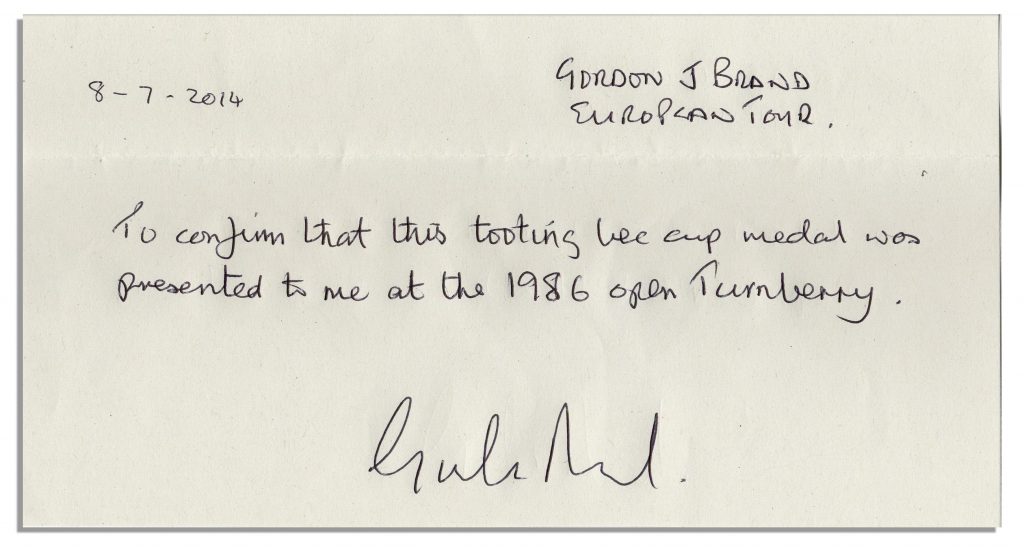 8-7-2014
GORDON J BRAND
EUROPEAN TOUR.
To confirm that this tooting bec cup medal was
presented to me at the 1986 open Turnberry.